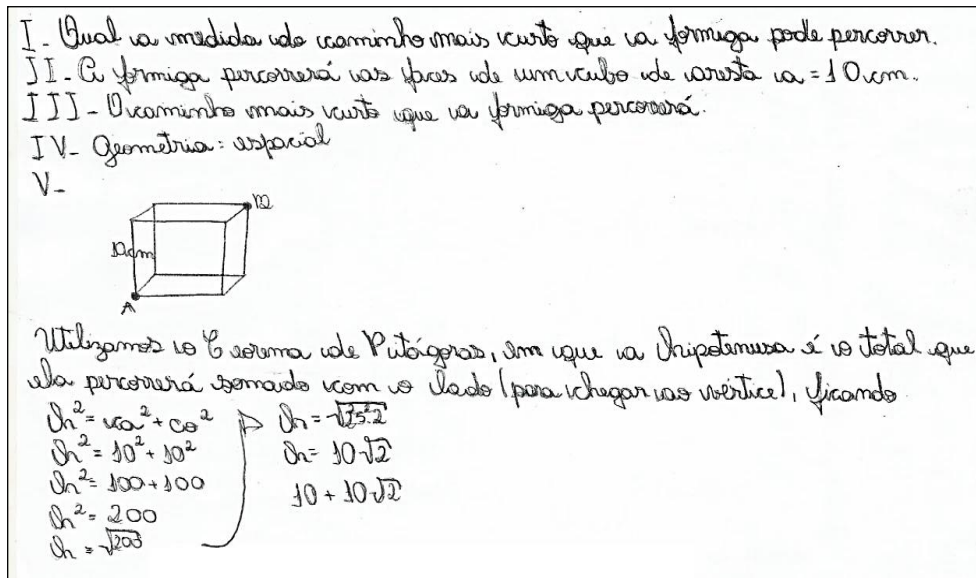 I - Qual a medida do caminho mais curto que a formiga pode percorrer.
II - A formiga percorrerá as faces de um cubo de aresta a = 10 cm.
III - O caminho mais curto que a formiga percorrerá.
IV - Geometria: espacial
V -
B
10cm
A
Utilizamos o Teorema de Pitágoras, em que a hipotenusa é o total que
ela percorrerá somado com o lado (para chegar ao vértice), ficando
h² = ca² + co²
h² = 10² + 10²
h² = 100 + 100
h² = 200
h = √200
h = 10√2
10 + 10√2